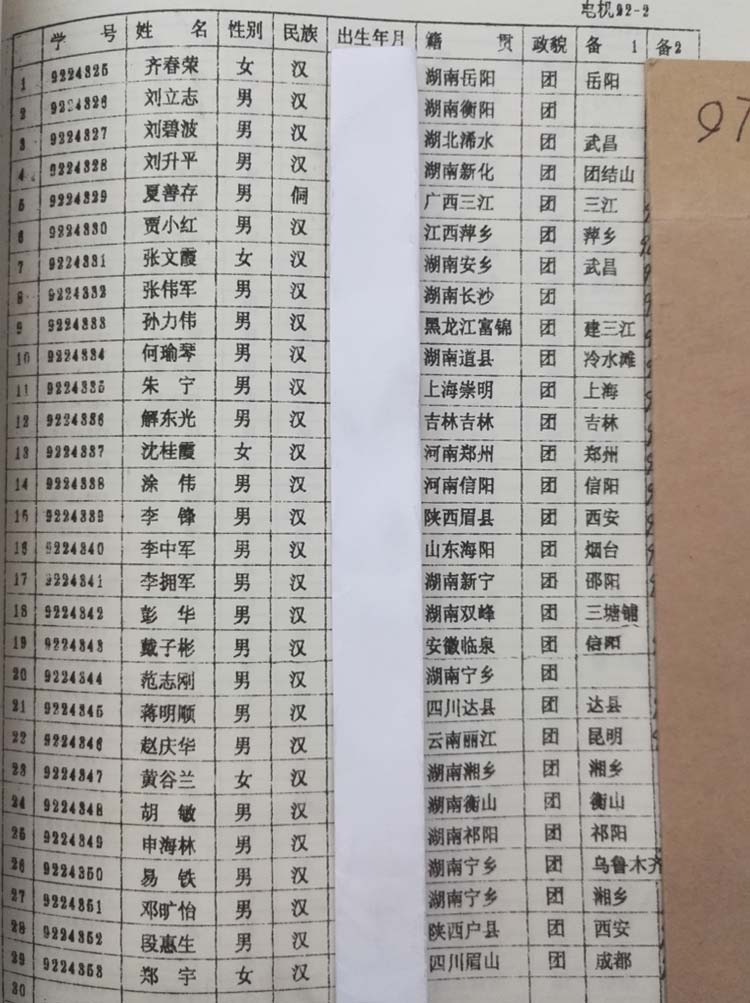 电机92-2
学 号 姓 名 性别 民族 出生年月 籍 贯 政貌 备1 备2
1 9224325 齐春荣 女 汉 湖南岳阳 团 岳阳
2 9224326 刘立志 男 汉 湖南衡阳 团
3 9224327 刘碧波 男 汉 湖北浠水 团 武昌
4 9224328 刘升平 男 汉 湖南新化 团 团结山
5 9224329 夏善存 男 侗 广西三江 团 三江
6 9224330 贾小红 男 汉 江西萍乡 团 萍乡
7 9224331 张文霞 女 汉 湖南安乡 团 武昌
8 9224332 张伟军 男 汉 湖南长沙 团
9 9224333 孙力伟 男 汉 黑龙江富锦 团 建三江
10 9224334 何瑜琴 男 汉 湖南道县 团 冷水滩
11 9224335 朱 宁 男 汉 上海崇明 团 上海
12 9224336 解东光 男 汉 吉林吉林 团 吉林
13 9224337 沈桂霞 女 汉 河南郑州 团 郑州
14 9224338 涂 伟 男 汉 河南信阳 团 信阳
15 9224339 李 锋 男 汉 陕西眉县 团 西安
16 9224340 李中军 男 汉 山东海阳 团 烟台
17 9224341 李拥军 男 汉 湖南新宁 团 邵阳
18 9224342 彭 华 男 汉 湖南双峰 团 三塘铺
19 9224343 戴子彬 男 汉 安徽临泉 团 信阳
20 9224344 范志刚 男 汉 湖南宁乡 团
21 9224345 蒋明顺 男 汉 四川达县 团 达县
22 9224346 赵庆华 男 汉 云南丽江 团 昆明
23 9224347 黄谷兰 女 汉 湖南湘乡 团 湘乡
24 9224348 胡 敏 男 汉 湖南衡山 团 衡山
25 9224349 申海林 男 汉 湖南祁阳 团 祁阳
26 9224350 易 铁 男 汉 湖南宁乡 团 乌鲁木齐
27 9224351 邓旷怡 男 汉 湖南宁乡 团 湘乡
28 9224352 段惠生 男 汉 陕西户县 团 西安
29 9224353 郑 宇 女 汉 四川眉山 团 成都
30
97